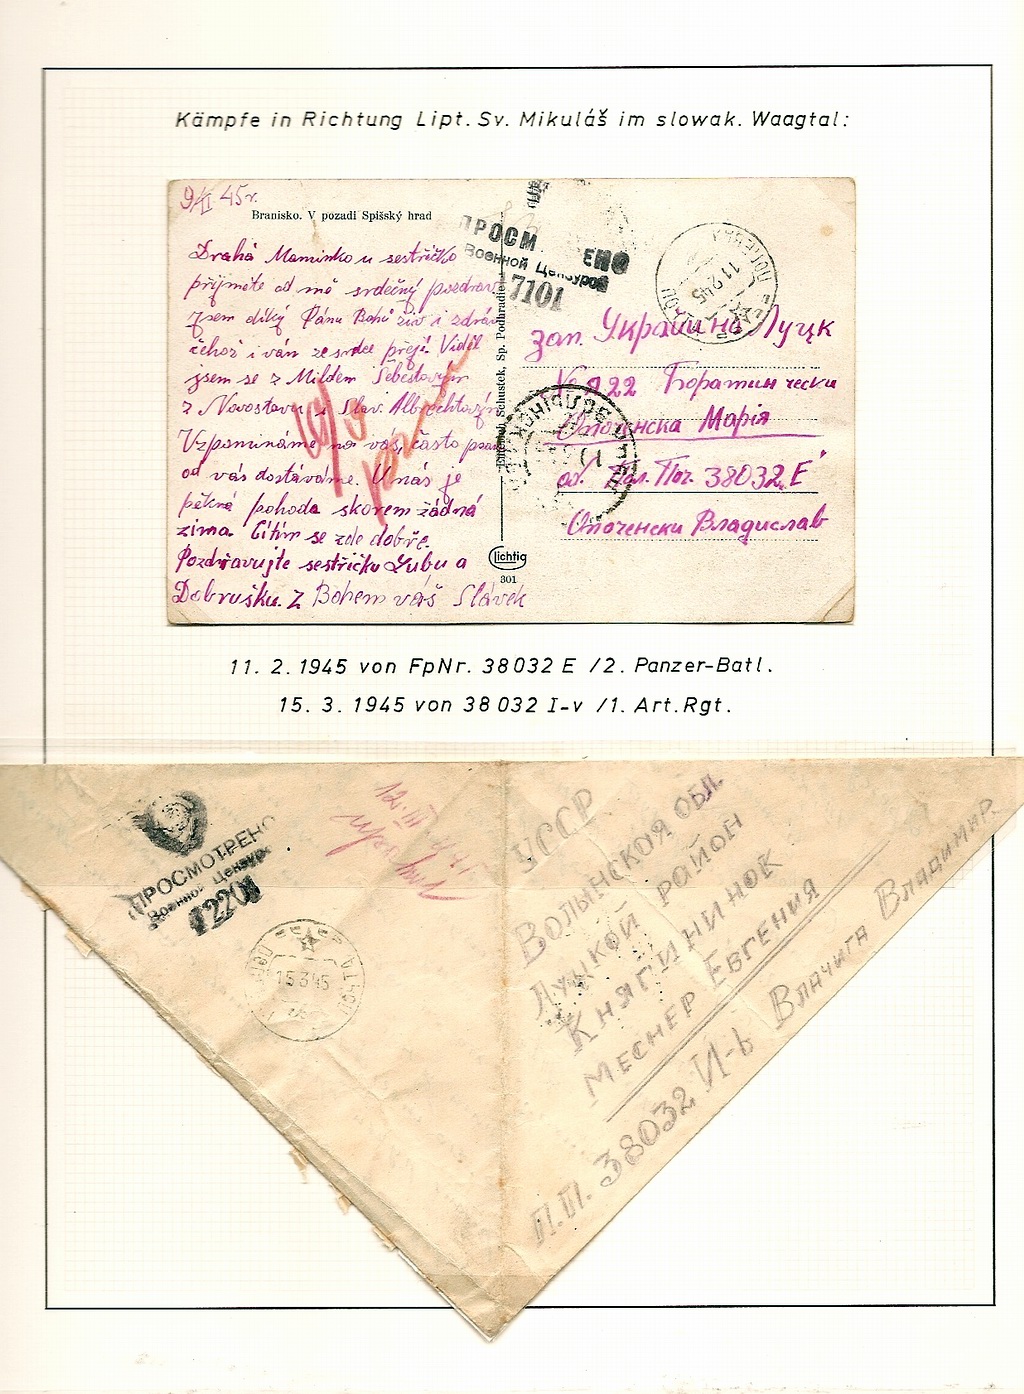 Kämpfe in Richtung Lipt. Sv. Mikuláš im slowak. Waagtal:
9/II 45 r.
Branisko. V pozadí Spišský hrad
Drahá Maminko u sestřičko
přijměte od mě srdečný pozdrav
jsem díky Pánu Bohu živ i zdráv
čehož i vám ze srdce přeji. Viděl
jsem se z Mildem Šebestovým
z Novostavu i Slav. Albrechtovým
Vzpomínáme na vás, často
od vás dostáváme. U nás je
pěkná pohoda skorem žádná
zima. Cítím se zde dobře.
Pozdravujte sestřičku Lubu a
Dobrušku. Z Bohem váš Slávek
Schustek, Sp. Podhradie
Lichtig
301
ПРОСМ ЕНО
Военной Цензурой
7101
11 2 45
зап. Украина Луцк
№ 822 Боратин чески
Опоченска Марія
од. Пол. Поч. 38032 Е
Опоченски Владислав
11. 2. 1945 von FpNr. 38032 E /2. Panzer-Batl.
15. 3. 1945 von 38032 I-v /1. Art.Rgt.
ПРОСМОТРЕНО
Военной Цензур
15 3 45
12 III
УССР
Волынской обл.
Луцкой район
Княгининок
Меснер Евгения
П.П. 38032 И-ь Влачига Владимир.